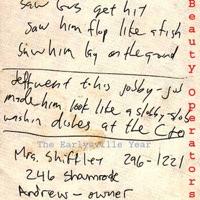 Saw Gus get hit
Saw him flop like a fish
Saw him lay on the ground
Jeff went this
made him look like a slobby-slob
washin dishes at the
The Earlysville Year
Mrs. Shiffley 296-1221
246 Shamrock
Andrew - owner
Beauty Operators